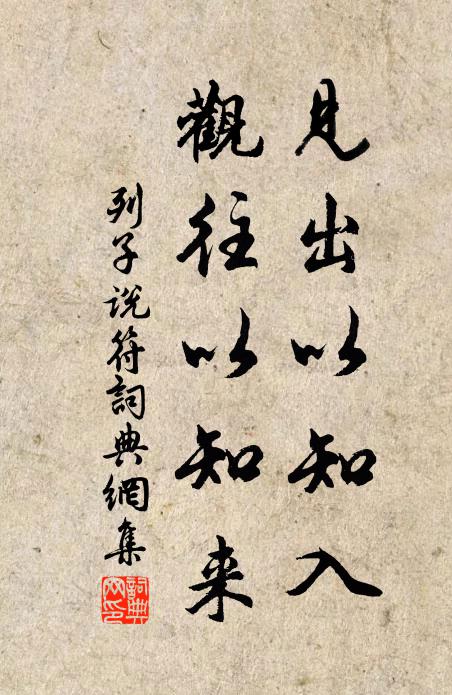 見出以知入
觀往以知来
列子说符詞典網集
詞典网印